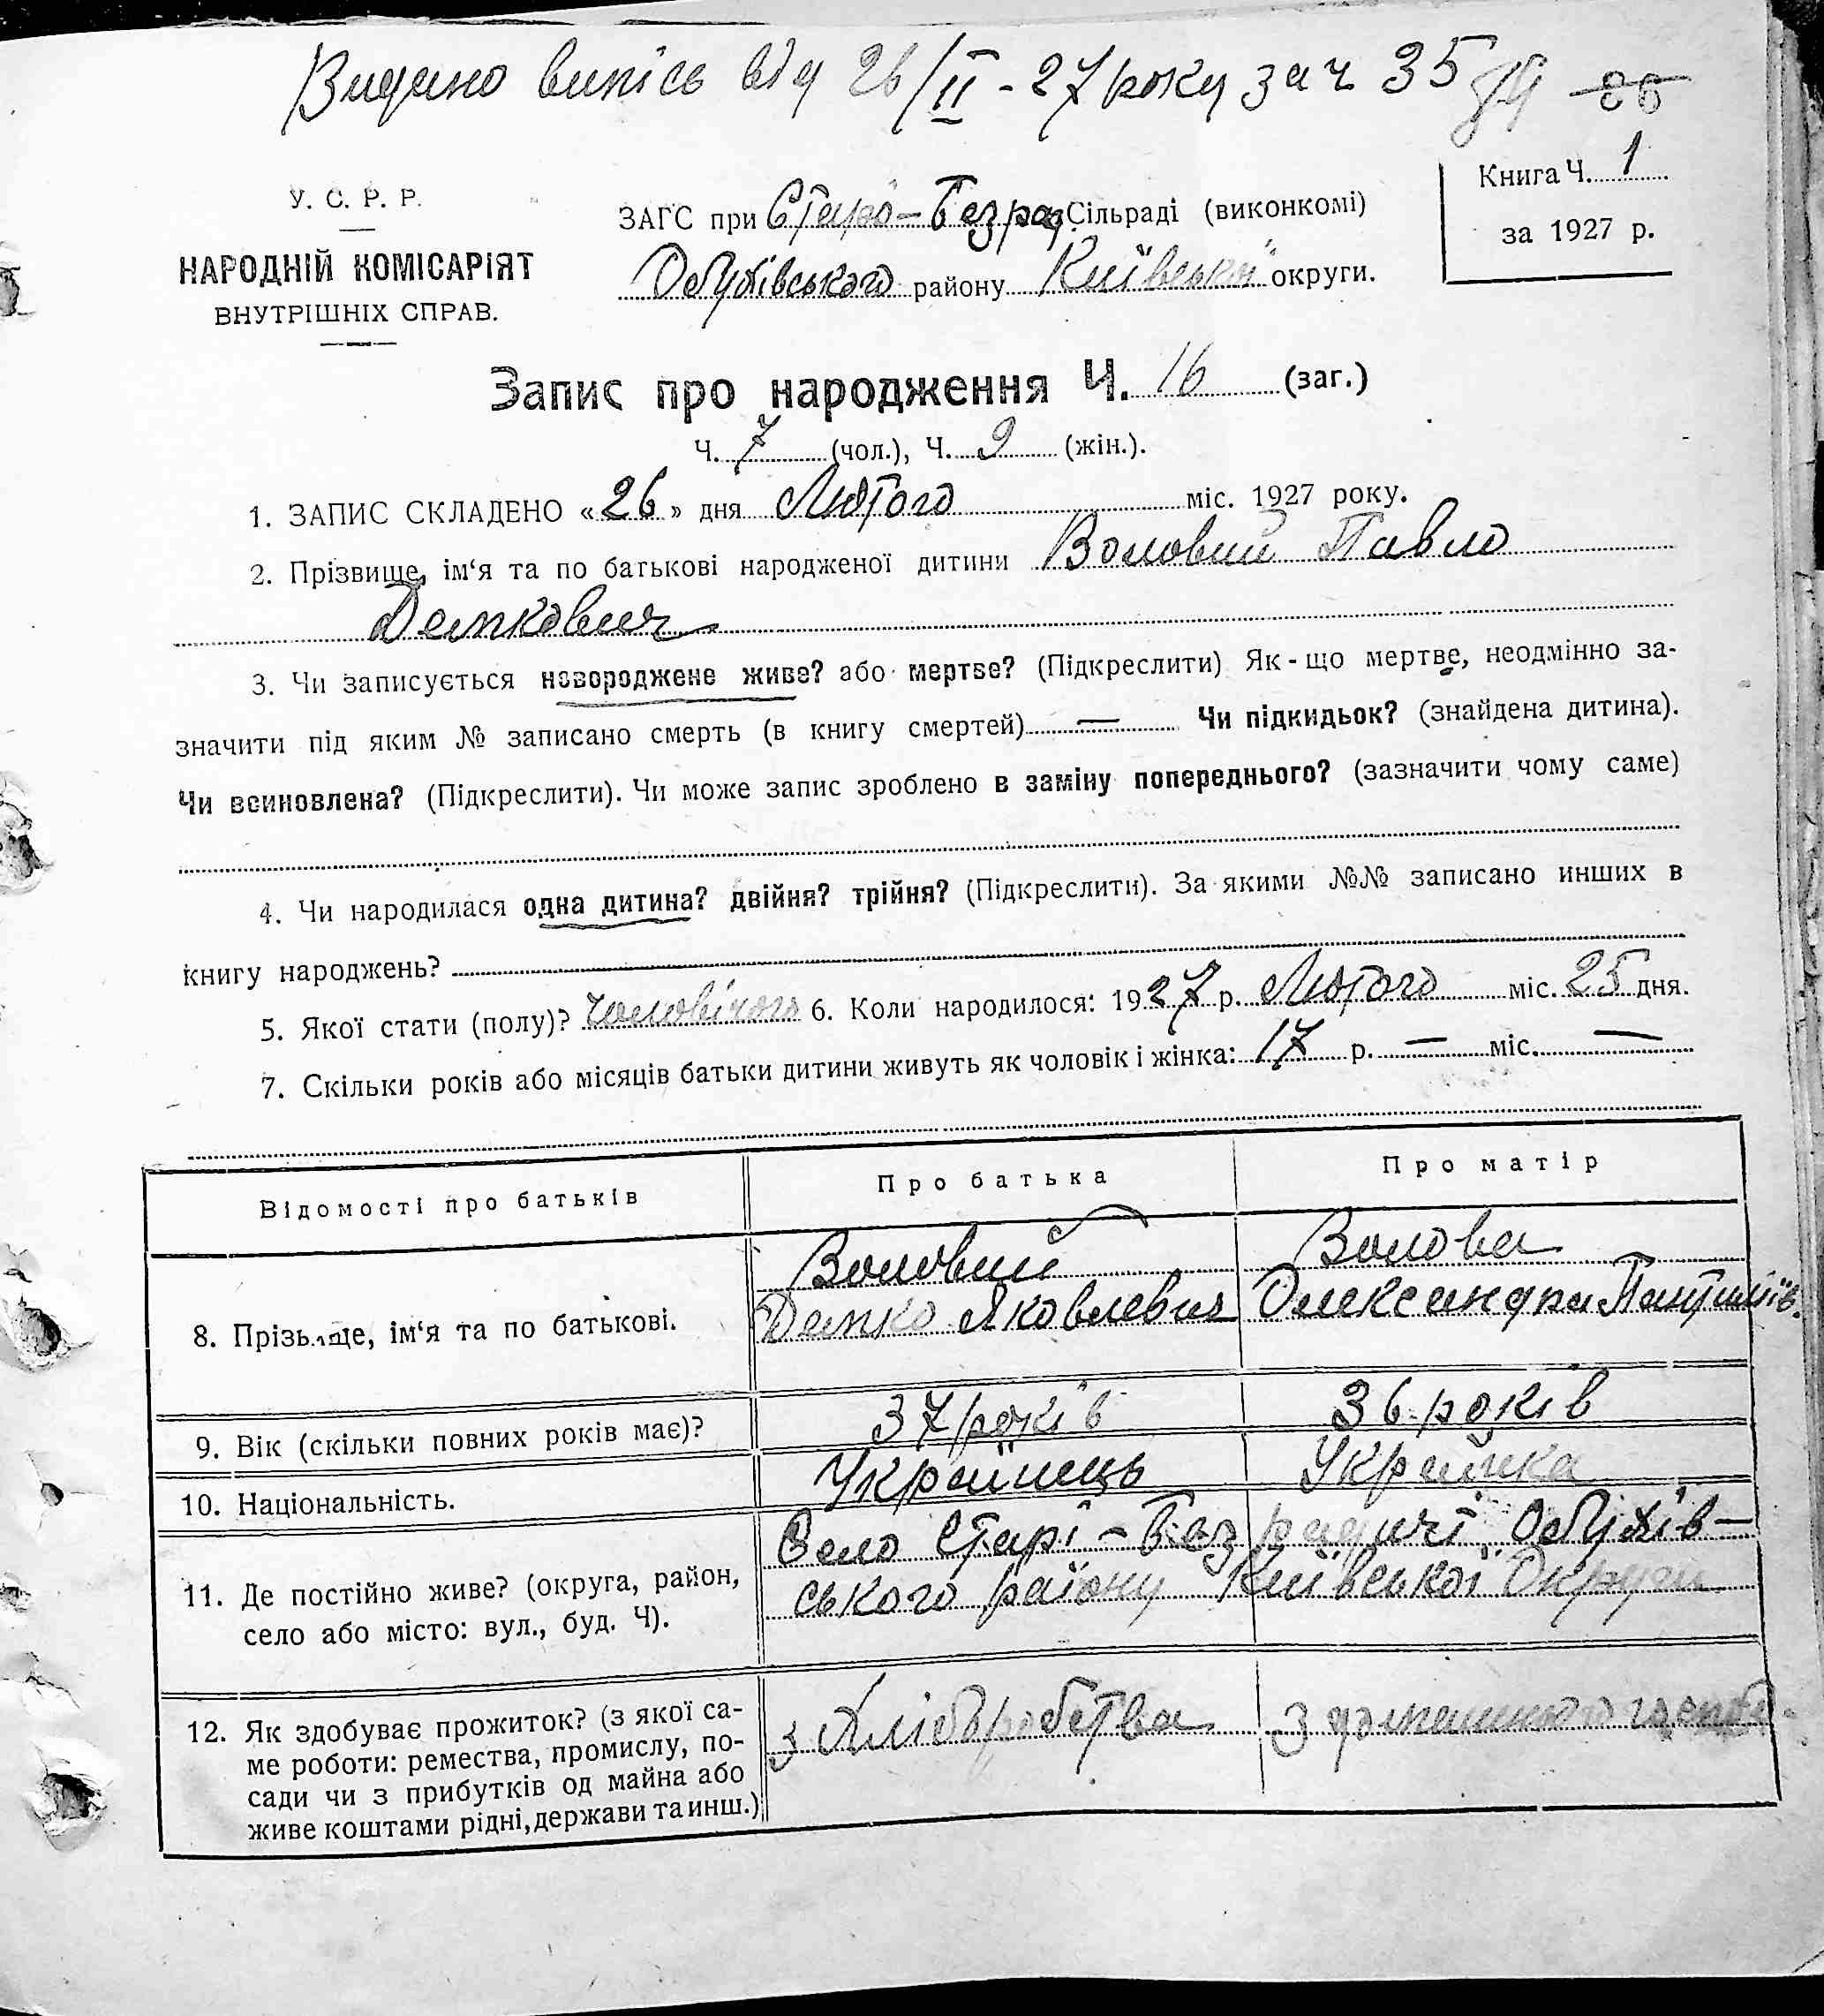 Видано випісь від 26/II - 27 року за ч 35 79 86
Книга Ч. 1
за 1927 р.
У. С. Р. Р.
НАРОДНІЙ КОМІСАРІЯТ
ВНУТРІШНІХ СПРАВ.
ЗАГС при Старо-Безрад Сільраді (виконкомі)
Обухівського району Київської округи.
Запис про народження Ч. 16 (заг.)
Ч. 7 (чол.), Ч. 9 (жін.).
1. ЗАПИС СКЛАДЕНО «26» дня Лютого міс. 1927 року.
2. Прізвище, ім‘я та по батькові народженої дитини Воловий Павло
Демкович
3. Чи записується новороджене живе? або мертве? (Підкреслити) Як-що мертве, неодмінно за-
значити під яким № записано смерть (в книгу смертей) — Чи підкидьок? (знайдена дитина).
Чи всиновлена? (Підкреслити). Чи може запис зроблено в заміну попереднього? (зазначити чому саме)
4. Чи народилася одна дитина? двійня? трійня? (Підкреслити). За якими №№ записано инших в
книгу народжень?
5. Якої стати (полу)? Чоловічого 6. Коли народилося: 1927 р. Лютого міс. 25 дня.
7. Скільки років або місяців батьки дитини живуть як чоловік і жінка: 17 р. — міс. —
Відомості про батьків Про батька Про матір
8. Прізвище, ім‘я та по батькові.
Воловий Волова
Демко Яковлевич Олександра Пантилїів.
9. Вік (скільки повних років має)? 37 років 36 років
10. Національність. Украйнець Украйнка
11. Де постійно живе? (округа, район,
село або місто: вул., буд. Ч).
Село Старі-Безрадичі Обухів-
ського району Київської Округи
12. Як здобуває прожиток? (з якої са-
ме роботи: ремества, промислу, по-
сади чи з прибутків од майна або
живе коштами рідні, держави та инш.)
з Хліборобства з домашнього господ.